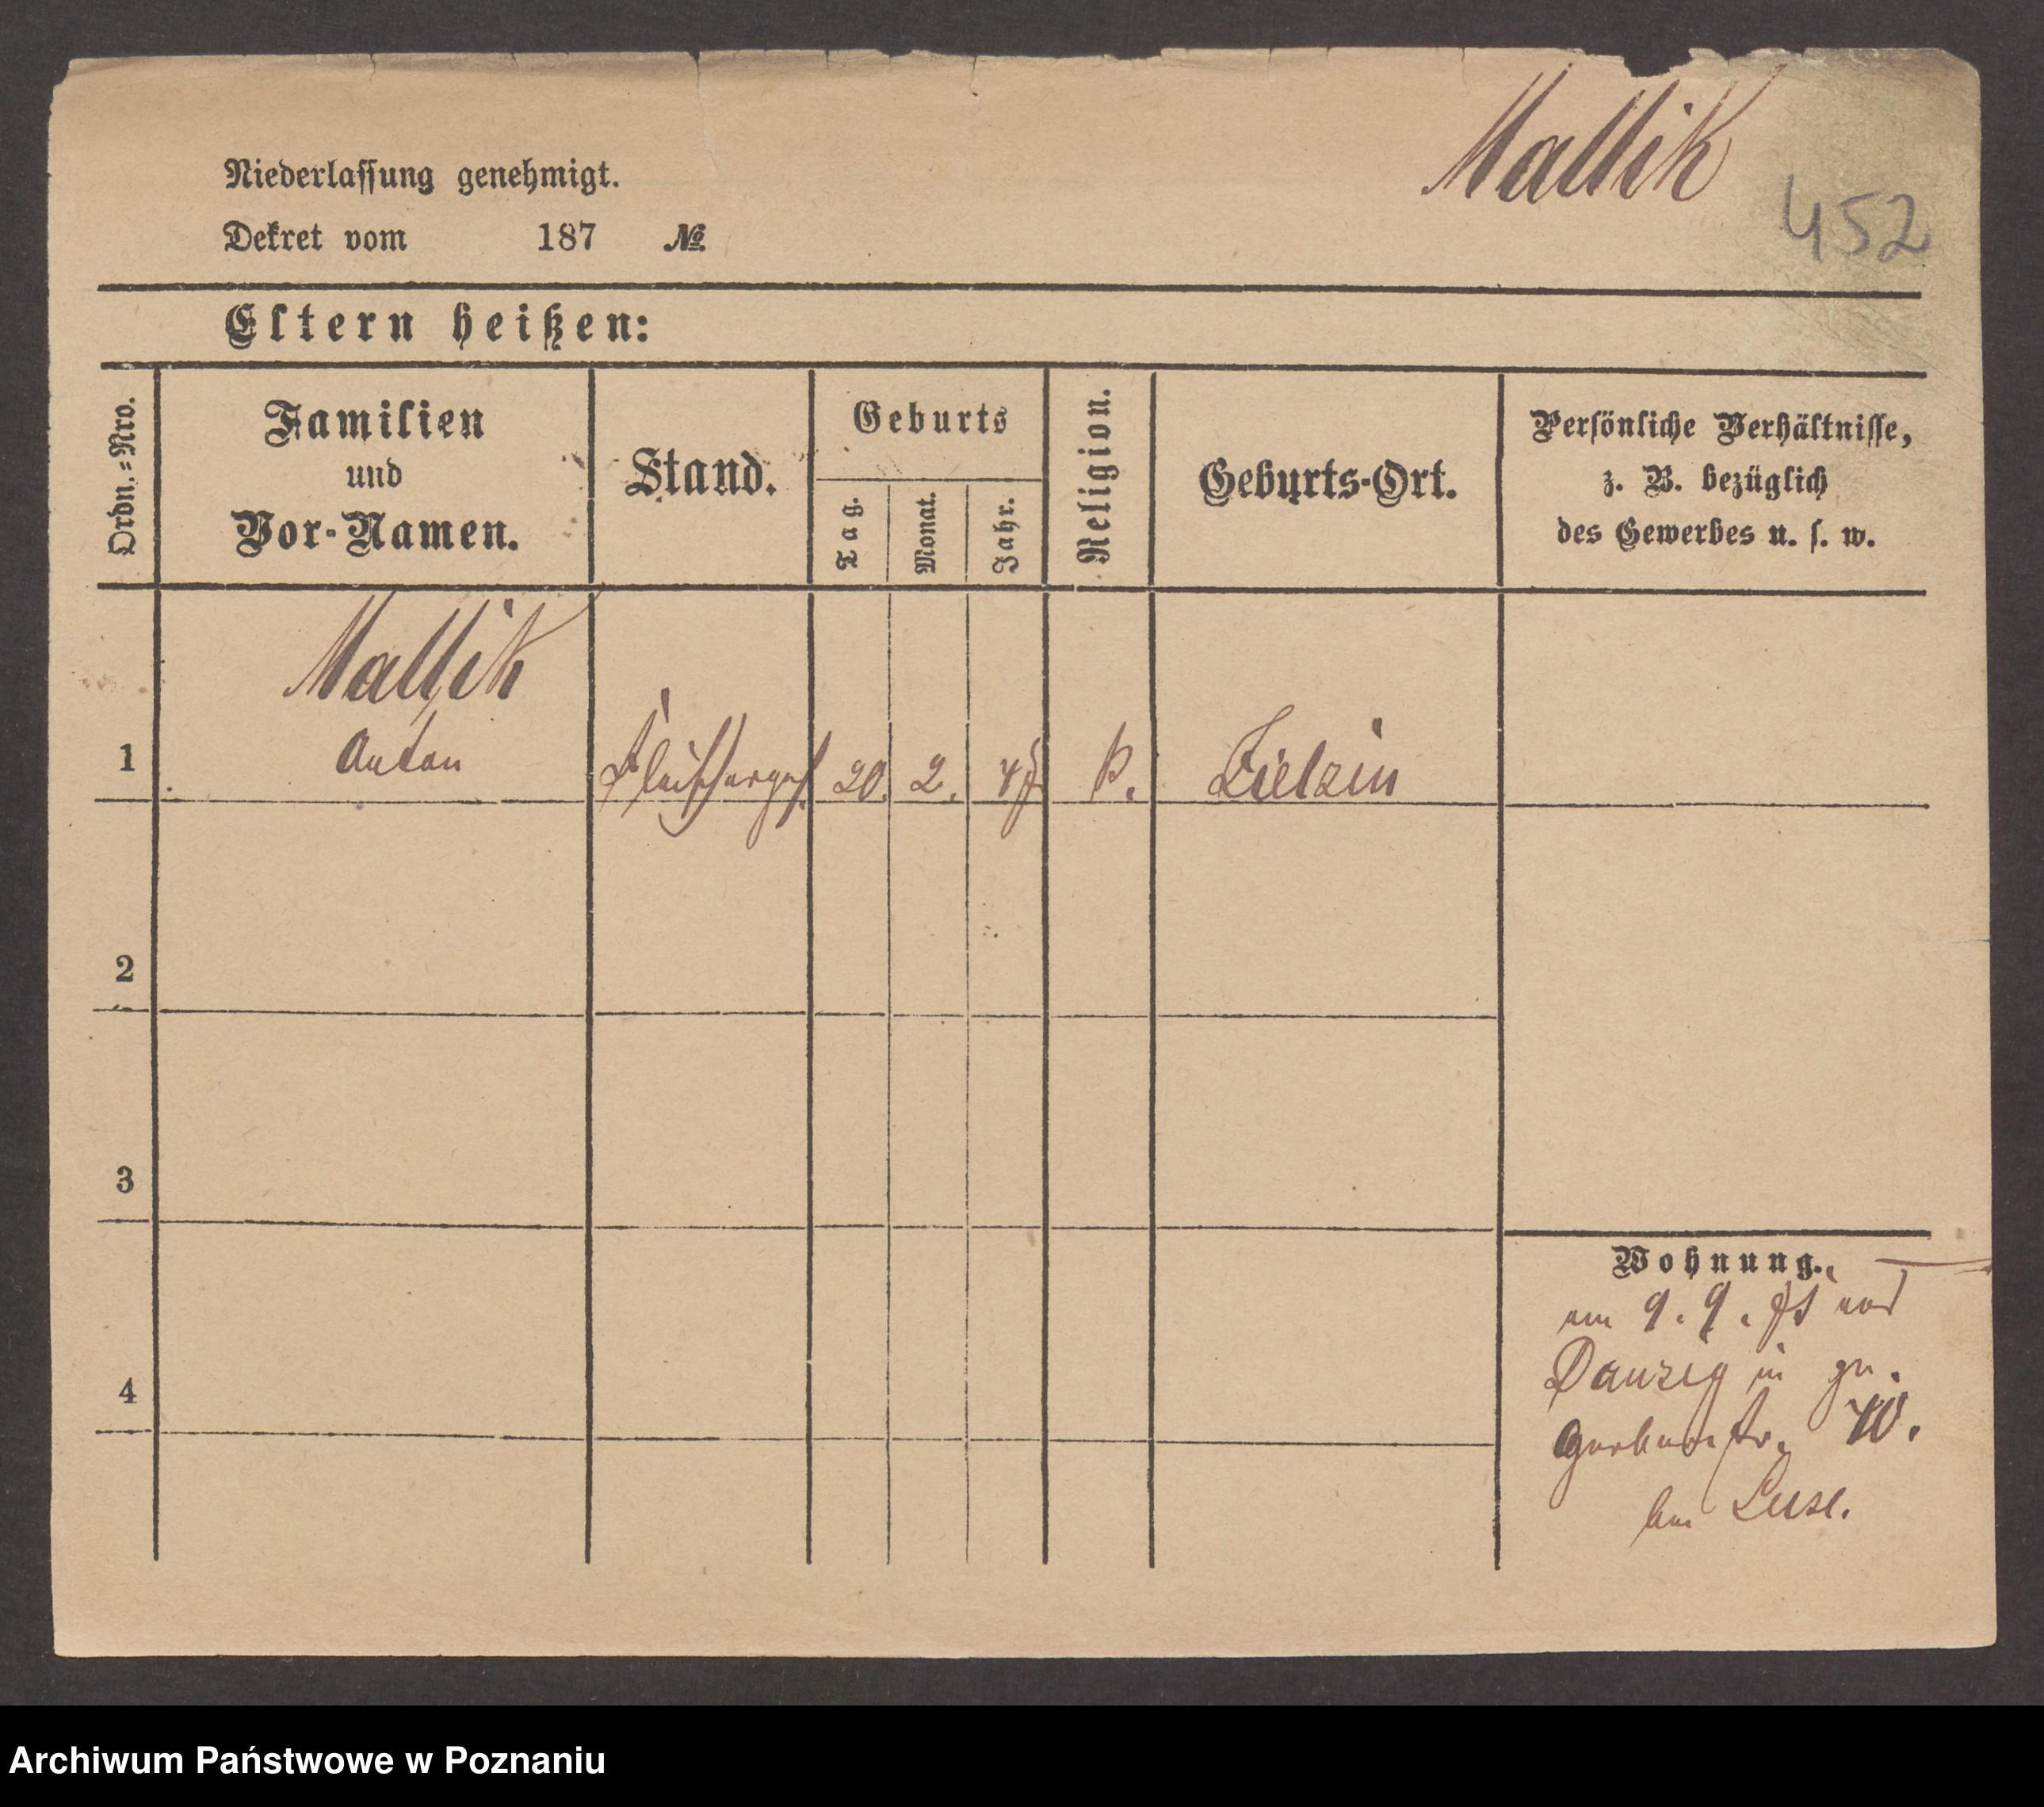 Mallik
452
Niederlassung genehmigt.
Dekret vom 187 №
Eltern heißen:
Ordn.=Nro.
Familien
und
Vor-Namen.
Stand.
Geburts
Tag.
Monat.
Jahr.
Religion.
Geburts-Ort.
Persönliche Verhältnisse,
z. B. bezüglich
des Gewerbes u. s. w.
Mallik
1 Anton Fleischerges 20. 2. k. Zielzin
2
3
4
Wohnung.
am 9. 9. von
Danzig in gr.
Gerberstr. 40.
bei
Archiwum Państwowe w Poznaniu